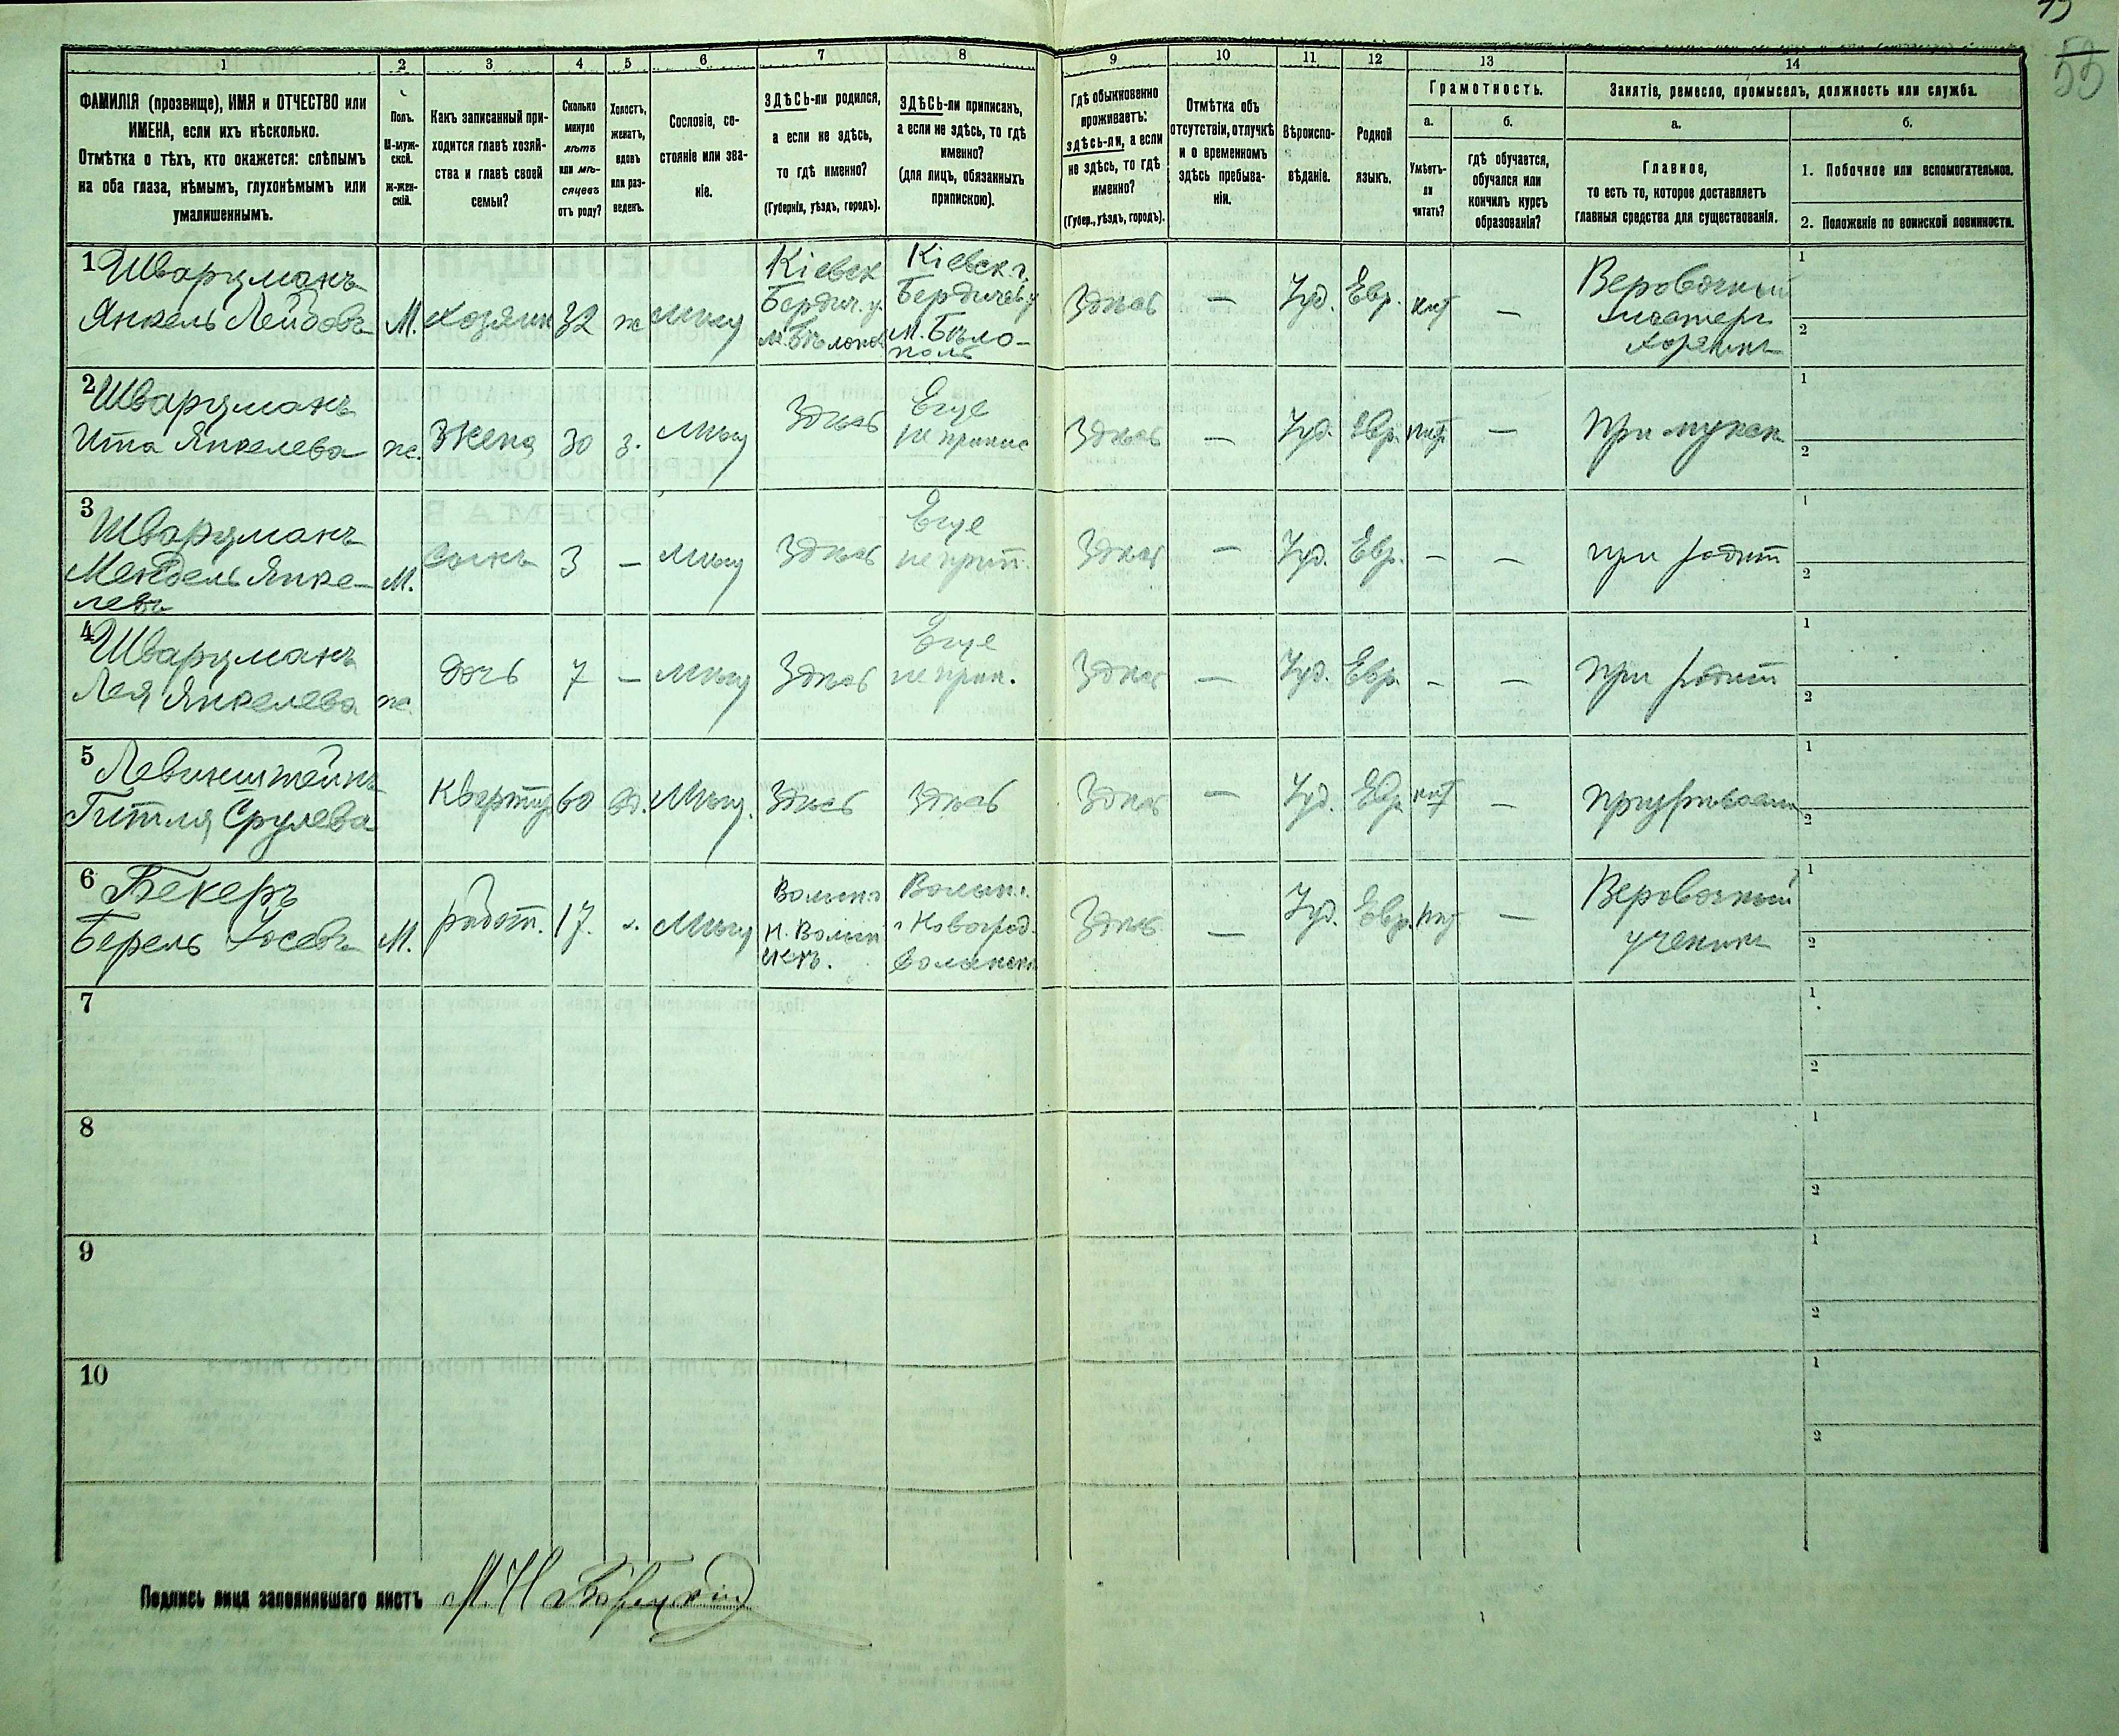 55
1 2 3 4 5 6 7 8 9 10 11 12 13 14
ФАМИЛІЯ (прозвище), ИМЯ и ОТЧЕСТВО или
ИМЕНА, если ихъ нѣсколько.
Отмѣтка о тѣхъ, кто окажется: слѣпымъ
на оба глаза, нѣмымъ, глухонѣмымъ или
умалишеннымъ.
Полъ.
М-муж-
ской.
ж-жен-
скій.
Какъ записанный при-
ходится главѣ хозяй-
ства и главѣ своей
семьи?
Сколько
минуло
лѣтъ
или мѣ-
сяцевъ
отъ роду?
Холостъ,
женатъ,
вдовъ
или раз-
веденъ.
Сословіе, со-
стояніе или зва-
ніе.
ЗДѢСЬ-ли родился,
а если не здѣсь,
то гдѣ именно?
(Губернія, уѣздъ, городъ).
ЗДѢСЬ-ли приписанъ,
а если не здѣсь, то гдѣ
именно?
(для лицъ, обязанныхъ
припискою).
Гдѣ обыкновенно
проживаетъ:
здѣсь-ли, а если
не здѣсь, то гдѣ
именно?
(Губер., уѣздъ, городъ).
Отмѣтка объ
отсутствіи, отлучкѣ
и о временномъ
здѣсь пребыва-
ніи.
Вѣроиспо-
вѣданіе.
Родной
языкъ.
Грамотность.
а.
Умѣетъ-
ли
читать?
б.
гдѣ обучается,
обучался или
кончилъ курсъ
образованія?
Занятіе, ремесло, промыселъ, должность или служба.
а.
Главное,
то есть то, которое доставляетъ
главныя средства для существованія.
б.
1. Побочное или вспомогательное.
2. Положеніе по воинской повинности.
1 Шварцманъ
Янкель Лейбовъ
М.
хозяин
32
ж
мищ
Кіевск
Бердич. у.
м. Бѣлопол
Кіевск. г.
Бердичев. у
м. Бѣло-
поль
Здѣсь
—
Іуд.
Евр.
—
Веровочный
мастеръ
хозяинъ
1
2
2 Шварцманъ
Ита Янкелева
ж.
Жена
30
з.
мищ
Здѣсь
Еще
не припис
Здѣсь
—
Іуд.
Евр.
—
При мужѣ
1
2
3 Шварцманъ
Мендель Янке-
левъ
М.
Сынъ
3
—
мищ
Здѣсь
Еще
не прип.
Здѣсь
—
Іуд.
Евр.
—
—
при родит
1
2
4 Шварцманъ
Лея Янкелева
ж.
дочь
7
—
мищ
Здѣсь
Еще
не прип.
Здѣсь
—
Іуд.
Евр.
—
—
При родит
1
2
5 Левинштейнъ
Гитля Срулева
Квартир
60
вд.
Мищ.
Здѣсь
Здѣсь
Здѣсь
—
Іуд.
Евр.
—
1
2
6 Бекеръ
Берель Іосевъ
М.
работ.
17.
х.
Мищ
Волын.
Н. Волын
скъ.
Волын.
Новоград.
волынск
Здѣсь
—
Іуд.
Евр.
—
Веровочный
ученикъ
1
2
7
1
2
8
1
2
9
1
2
10
1
2
Подпись лица заполнившаго листъ